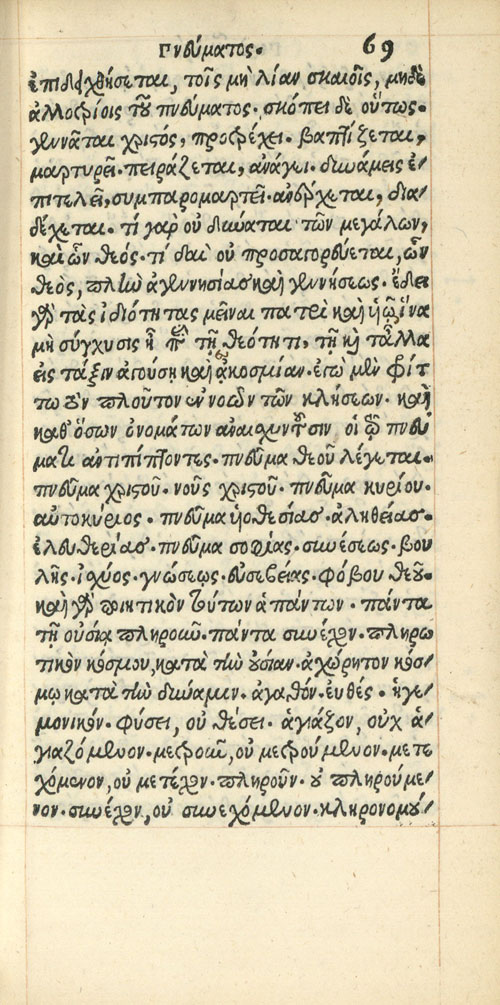 Πνεύματος. 69
ἐπιδειχθήσεται, τοῖς μὴ λίαν σκαιοῖς, μηδὲ
ἀλλοτρίοις τοῦ πνεύματος. σκόπει δὲ οὕτως.
γεννᾶται χριστός, προτρέχει. βαπτίζεται,
μαρτυρεῖ. πειράζεται, ἀνάγει. δυνάμεις ἐ-
πιτελεῖ, συμπαρομαρτεῖ. ἀνέρχεται, δια-
δέχεται. τί γὰρ οὐ δύναται τῶν μεγάλων,
καὶ ὧν θεός. τί δαὶ οὐ προσαγορεύεται, ὧν
θεὸς, πλὴν ἀγεννησίας καὶ γεννήσεως. ἔδει
γὰρ τὰς ἰδιότητας μεῖναι πατρὶ καὶ υἱῷ, ἵνα
μὴ σύγχυσις ᾖ παρὰ τῇ θεότητι, τῇ καὶ τἆλλα
εἰς τάξιν ἀγούσῃ καὶ ἀκοσμίαν. ἐγὼ μὲν φρίτ
τω τὸν πλοῦτον ἐννοῶν τῶν κλήσεων. καὶ
καθ' ὅσων ὀνομάτων ἀναισχυντοῦσιν οἱ τῷ πνεύ
ματι ἀντιπίπτοντες. πνεῦμα θεοῦ λέγεται.
πνεῦμα χριστοῦ. νοῦς χριστοῦ. πνεῦμα κυρίου.
αὐτοκύριος. πνεῦμα υἱοθεσίας. ἀληθείας.
ἐλευθερίας. πνεῦμα σοφίας. συνέσεως. βου
λῆς. ἰσχύος. γνώσεως. εὐσεβείας. φόβου θεοῦ.
καὶ γὰρ ποιητικὸν τούτων ἁπάντων. πάντα
τῇ οὐσίᾳ πληροῦν. πάντα συνέχον. πληρω
τικὸν κόσμου, κατὰ τὴν οὐσίαν. ἀχώρητον κόσ-
μῳ κατὰ τὴν δύναμιν. ἀγαθόν. εὐθές. ἡγε-
μονικόν. φύσει, οὐ θέσει. ἁγιάζον, οὐχ ἁ-
γιαζόμενον. μετροῦν, οὐ μετρούμενον. μετε
χόμενον, οὐ μετέχον. πληροῦν. οὐ πληρούμε-
νον. συνέχον, οὐ συνεχόμενον. κληρονομού-